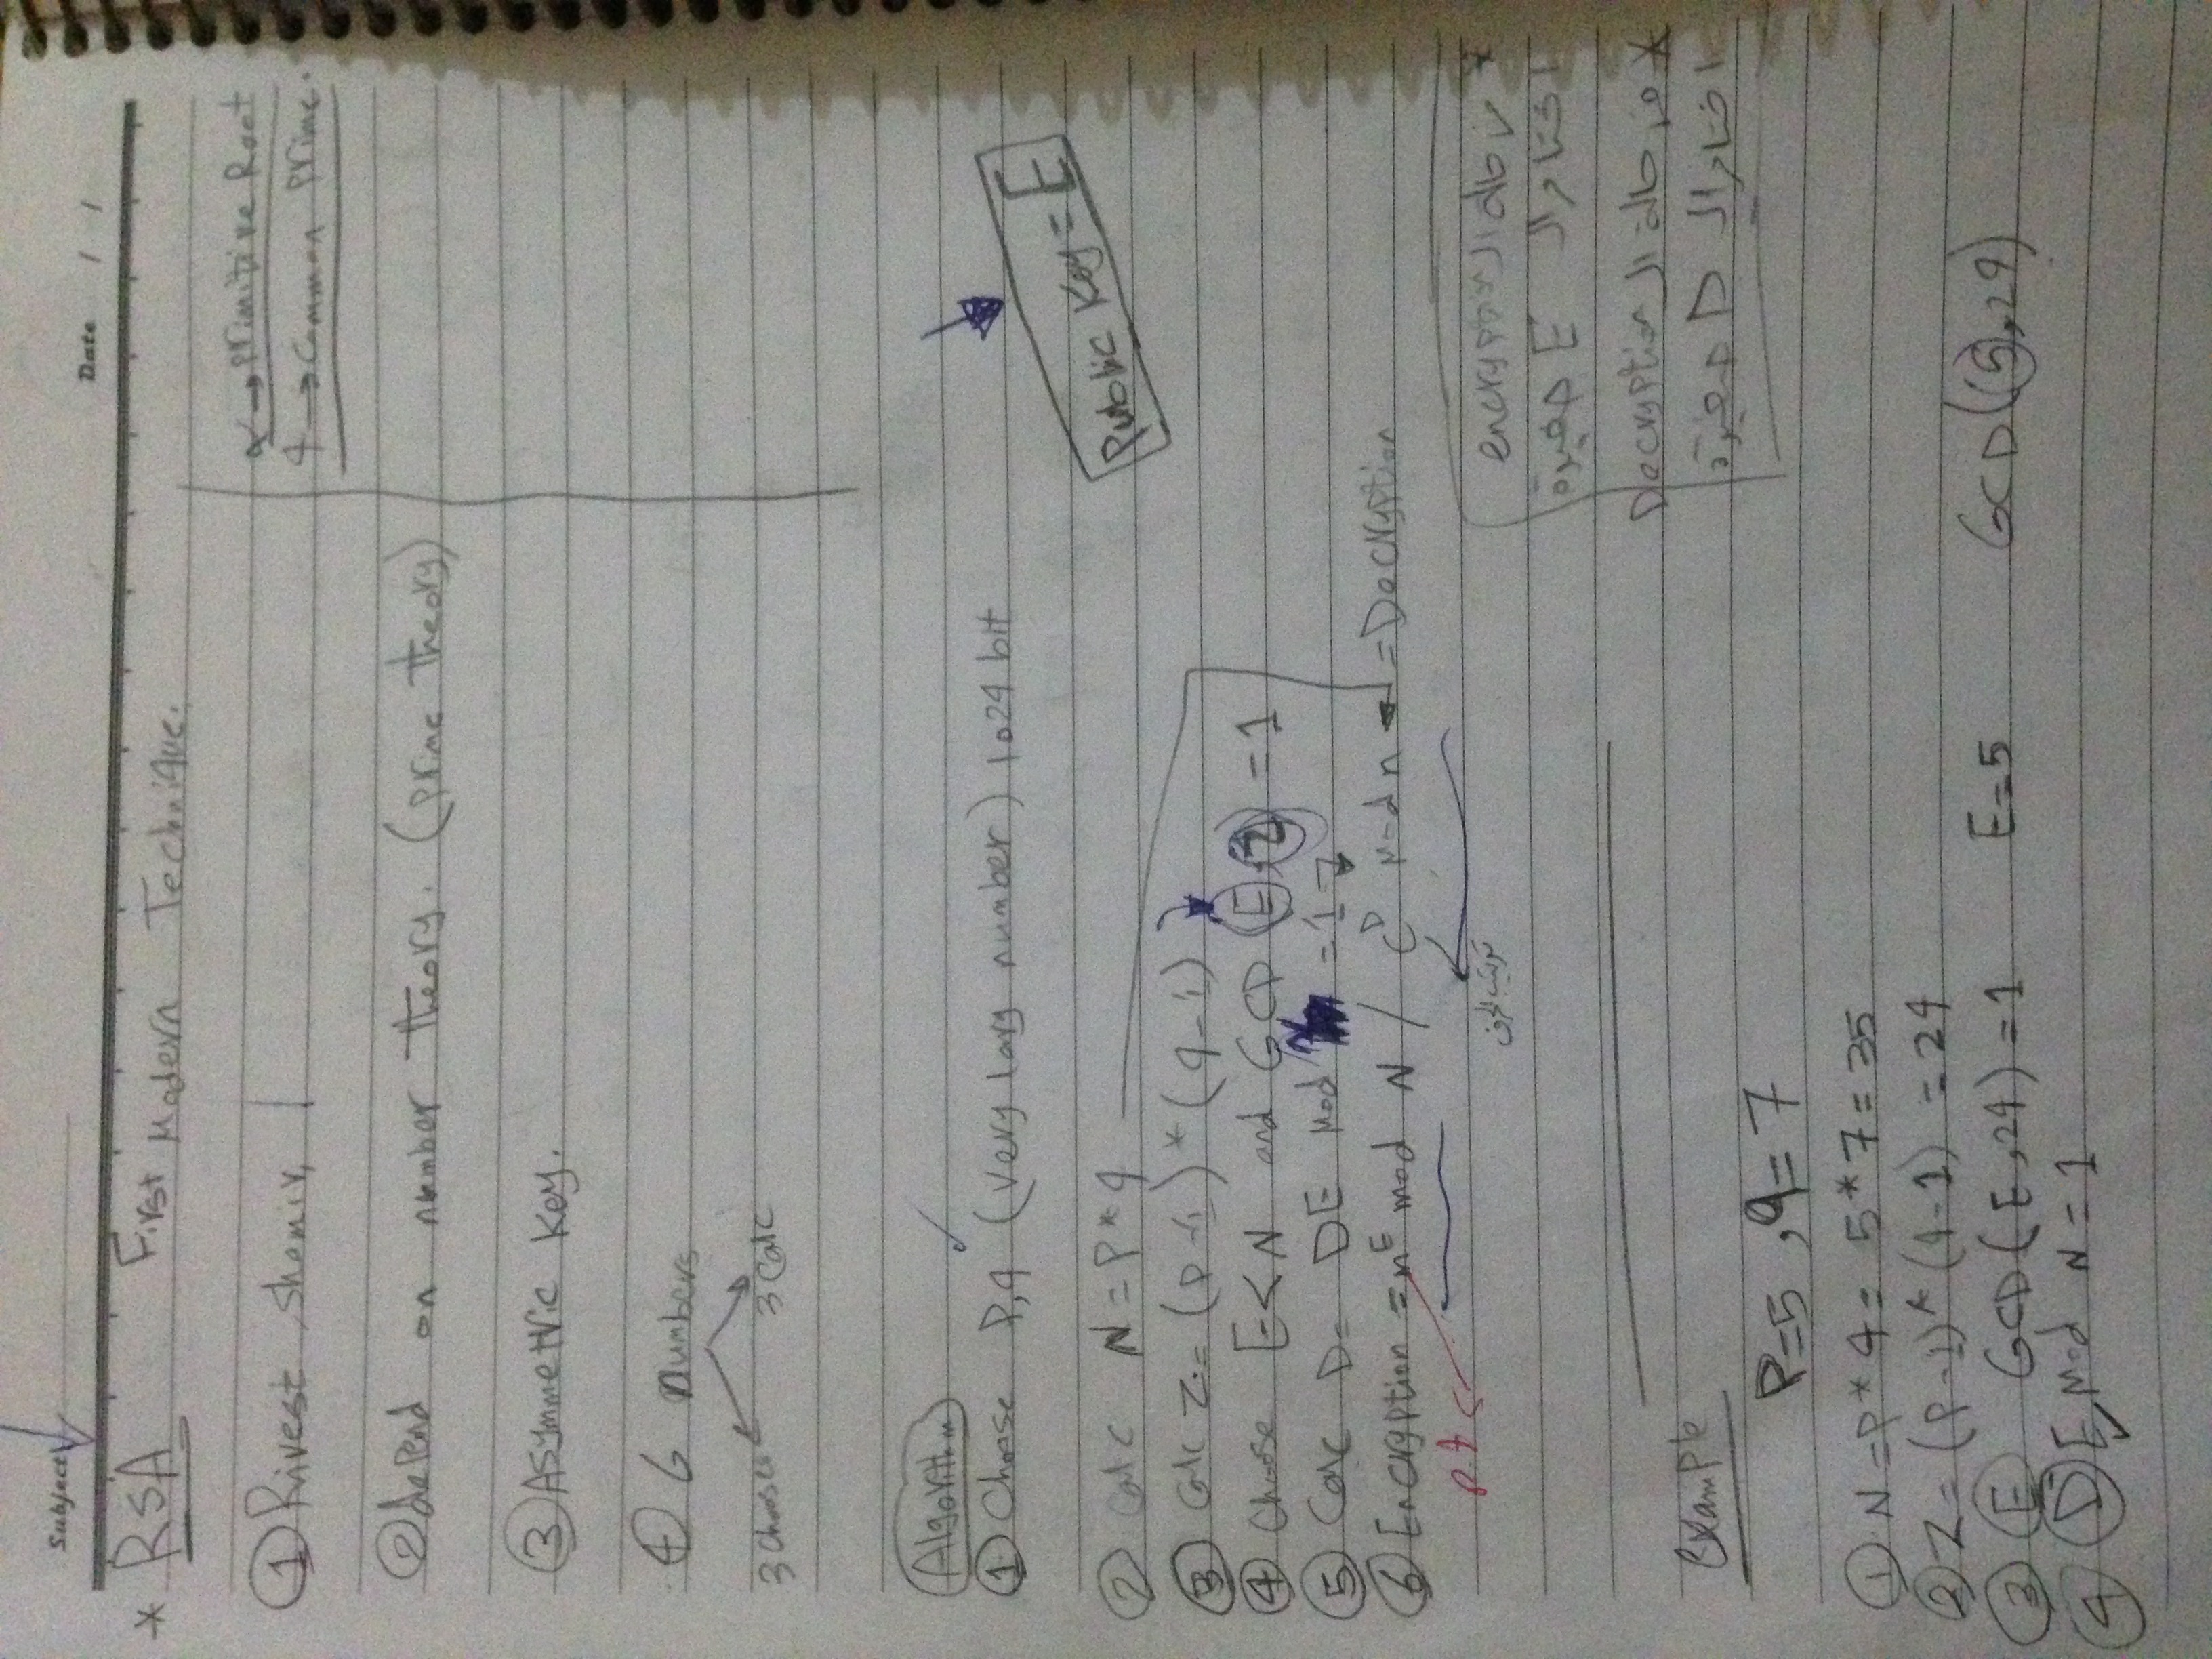 Subject
Date / /
* RSA First Modern Technique.
α → Primitive Root
q → Common Prime.
① Rivest Shamir,
② depend on number theory. (prime theory)
③ Asymmetric Key.
④ 6 numbers
3 Choose 3 Calc
Algorithm
① Choose P,q (very larg number) 1024 bit
Public Key = E
② Calc N = P * q
③ Calc Z = (P-1) * (q-1)
④ Choose E < N and GCD (E, Z) = 1
⑤ Calc D = DE Mod = 1 Z
⑥ Encryption = m^E mod N / C^D Mod n = Decryption
P.t
ترتيب الحرف
* في حالة ال encryption
اختار ال E صغيرة
* في حالة ال Decryption
اختار ال D صغيرة
Example
P=5 , q=7
① N = P * q = 5 * 7 = 35
② Z = (P-1) * (q-1) = 24
③ E GCD (E, 24) = 1 E=5 GCD (5, 24)
④ D E Mod N = 1